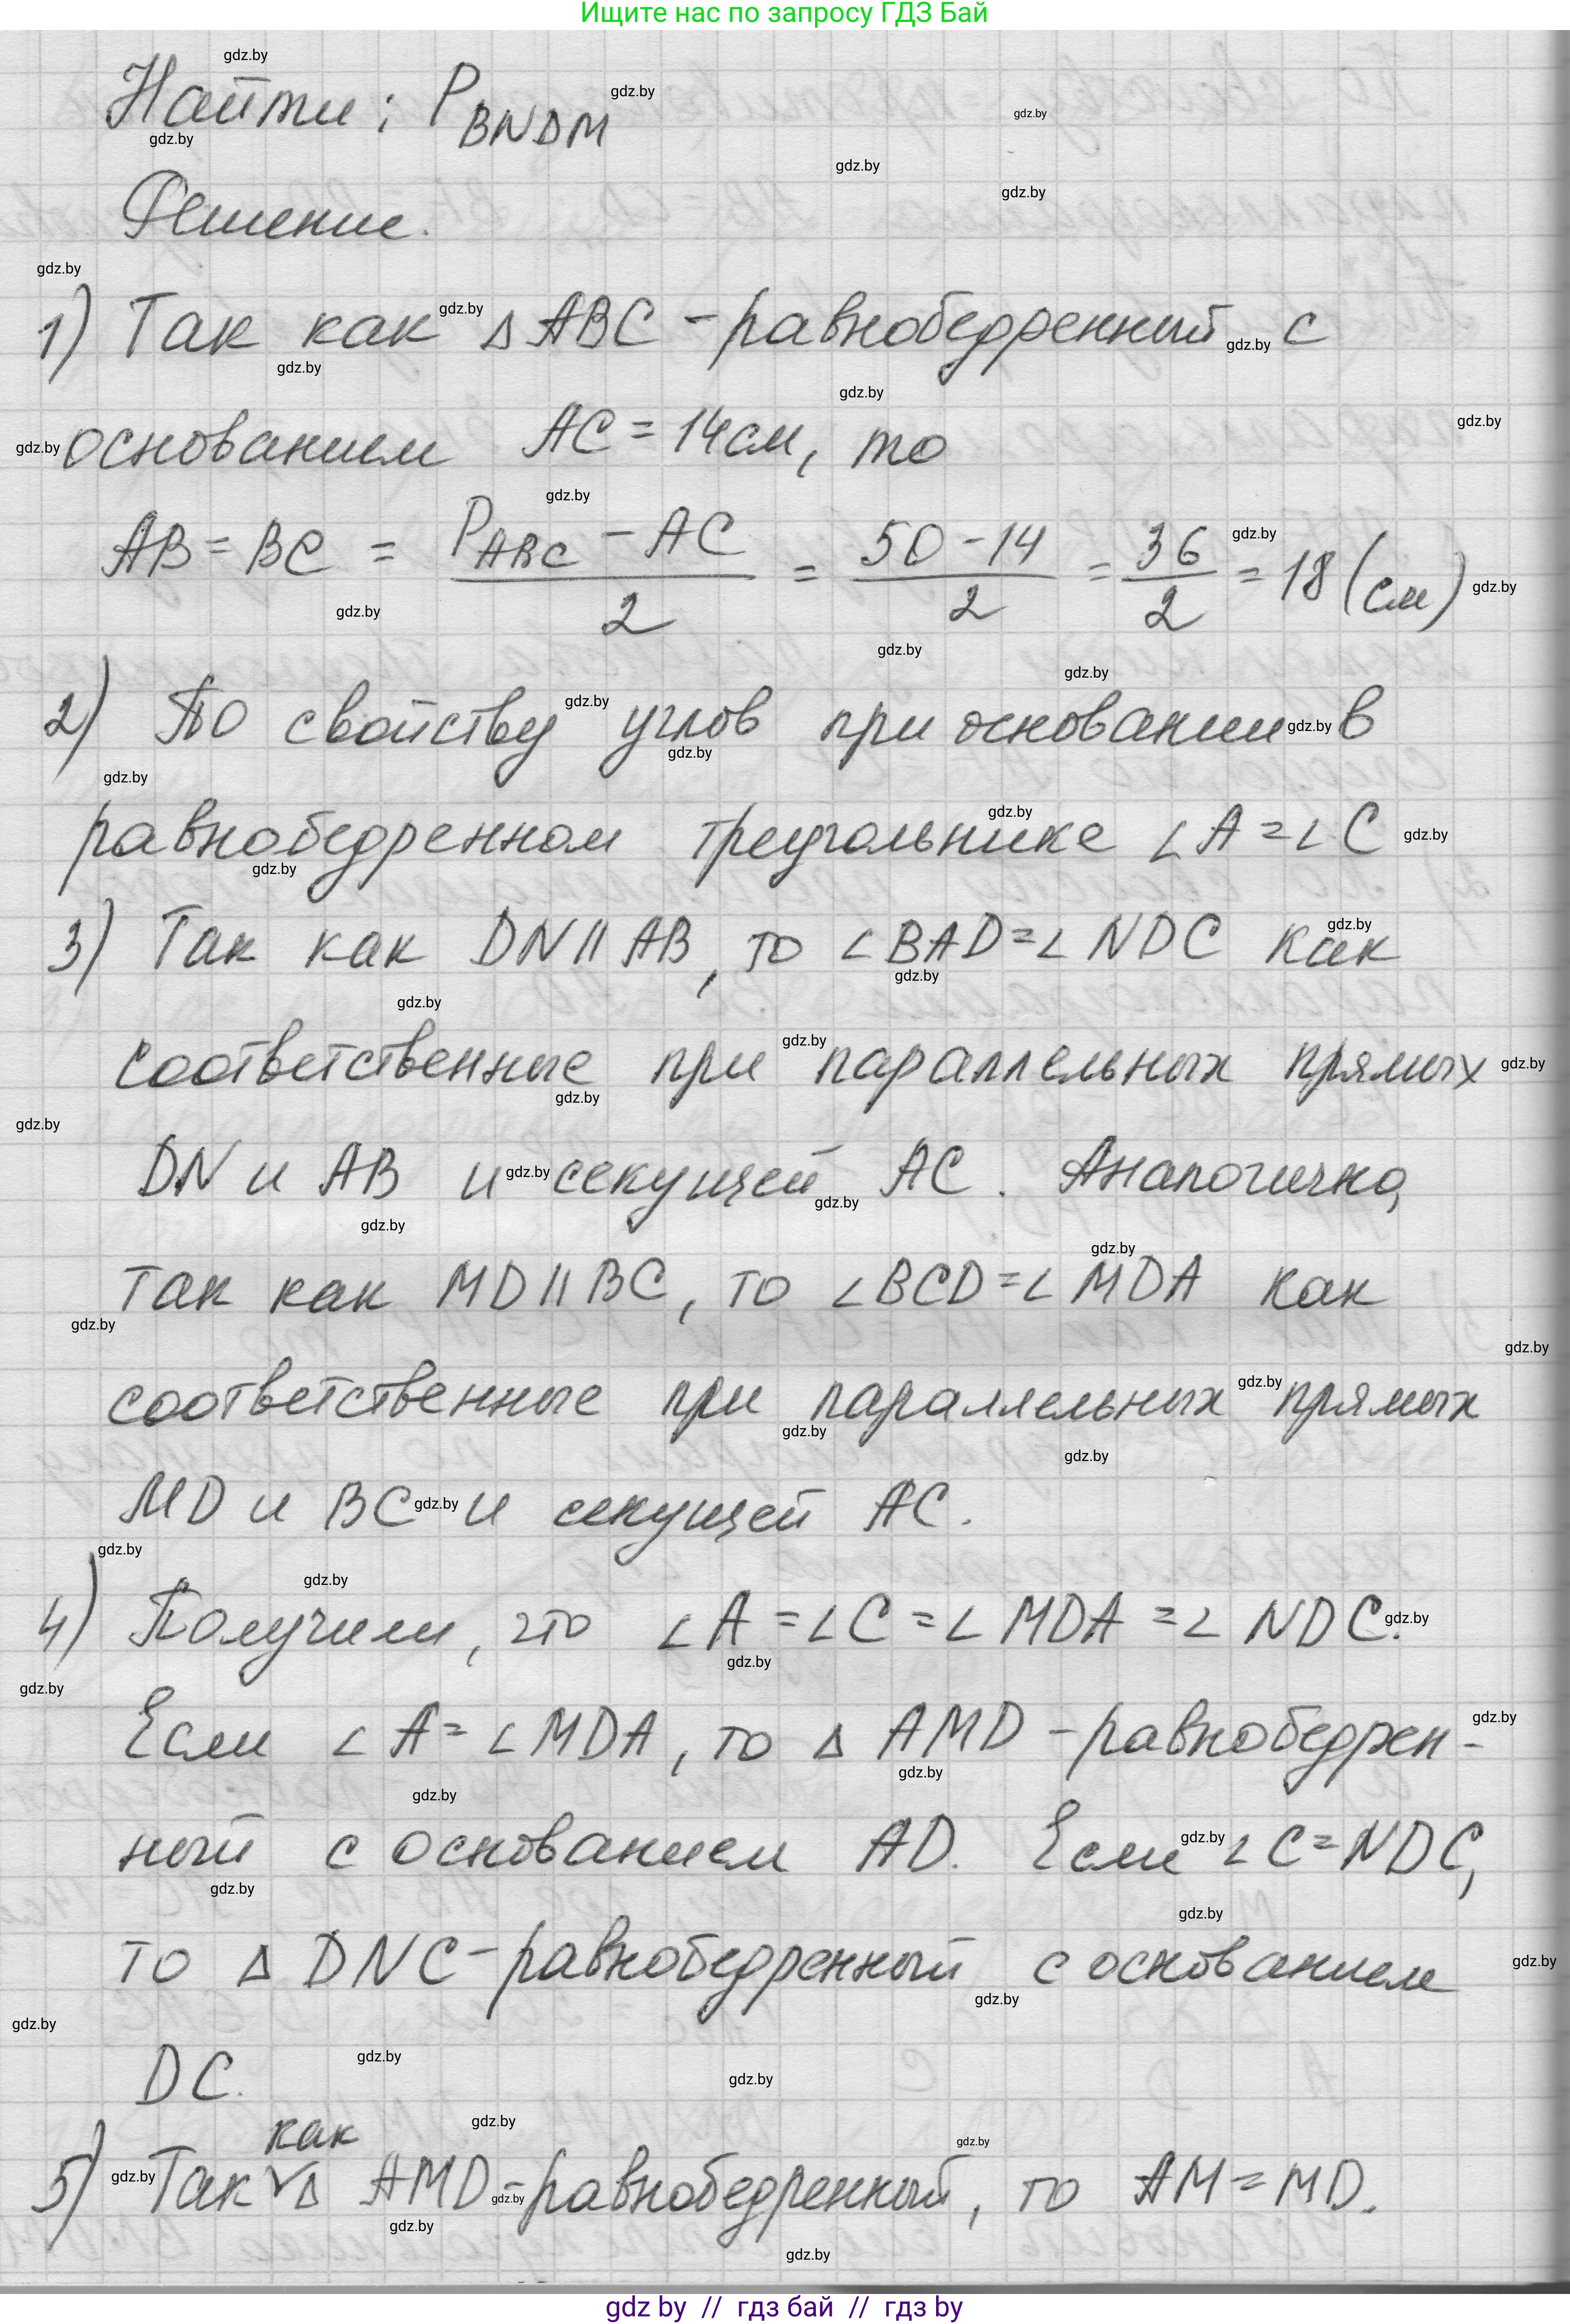 Ищите нас по запросу ГДЗ Бай
Найти: P_BNDM
Решение.
1) Так как △ ABC - равнобедренный с
основанием AC = 14см, то
AB = BC = (P_ABC - AC)/2 = (50 - 14)/2 = 36/2 = 18 (см)
2) По свойству углов при основании в
равнобедренном треугольнике ∠A = ∠C
3) Так как DN || AB, то ∠BAD = ∠NDC как
соответственные при параллельных прямых
DN и AB и секущей AC. Аналогично,
так как MD || BC, то ∠BCD = ∠MDA как
соответственные при параллельных прямых
MD и BC и секущей AC.
4) Получили, что ∠A = ∠C = ∠MDA = ∠NDC.
Если ∠A = ∠MDA, то △ AMD - равнобедрен-
ный с основанием AD. Если ∠C = NDC,
то △ DNC - равнобедренный с основанием
DC.
5) Так как △ AMD - равнобедренный, то AM = MD.
gdz by // гдз бай // гдз by